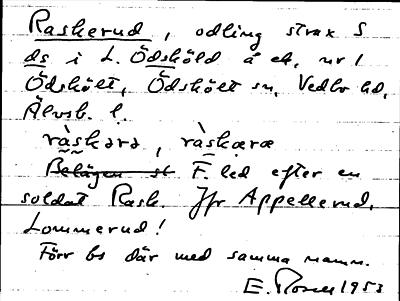 Raskerud, odling strax S
ds i L. Ödsköld å ek. nr 1
Ödskölt, Ödskölt sn, Vedbo hd,
Älvsb. l.
ràskərə, ràskæræ
Belägen st F. led efter en
soldat Rask. Jfr Appellerud,
Lommerud!
Förr bs där med samma namn.
E. Rosell 1953